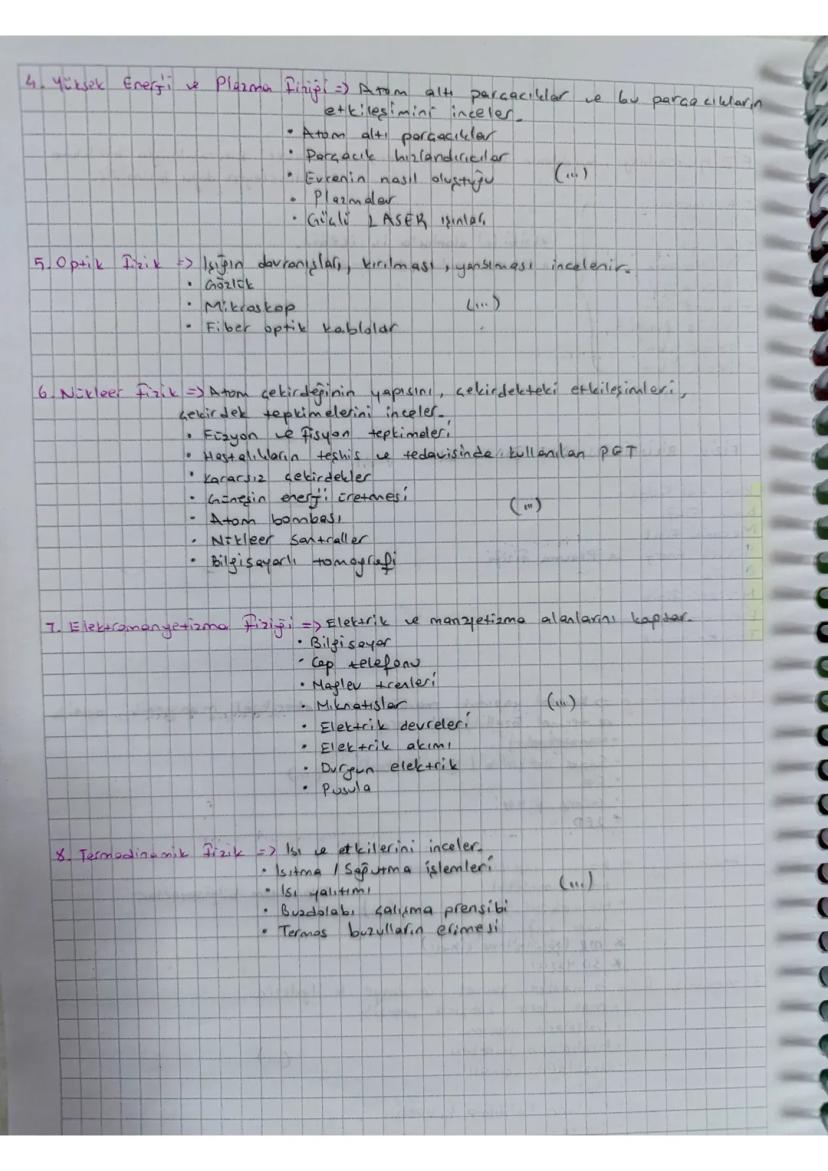 4. Yüksek Enerji ve Plazma Fiziği => Atom altı parçacıklar ve bu parçacıkların
etkileşimini inceler.
• Atom altı parçacıklar
• Parçacık hızlandırıcılar
• Evrenin nasıl oluştuğu (...)
• Plazmalar
• Güçlü LASER ışınları
5. Optik Fizik => Işığın davranışları, kırılması, yansıması incelenir.
• Gözlük
• Mikroskop (...)
• Fiber optik kablolar
6. Nükleer Fizik => Atom çekirdeğinin yapısını, çekirdekteki etkileşimleri,
çekirdek tepkimelerini inceler.
• Füzyon ve fisyon tepkimeleri
• Hastalıkların teşhis ve tedavisinde kullanılan PET
• Kararsız çekirdekler
• Güneşin enerji üretmesi (...)
• Atom bombası
• Nükleer santraller
• Bilgisayarlı tomografi
7. Elektromanyetizma Fiziği => Elektrik ve manyetizma alanlarını kapsar.
• Bilgisayar
• Cep telefonu
• Maglev trenleri
• Mıknatıslar (...)
• Elektrik devreleri
• Elektrik akımı
• Durgun elektrik
• Pusula
8. Termodinamik Fizik => Isı ve etkilerini inceler.
• Isıtma / Soğutma işlemleri
• Isı yalıtımı (...)
• Buzdolabı çalışma prensibi
• Termos buzulların erimesi